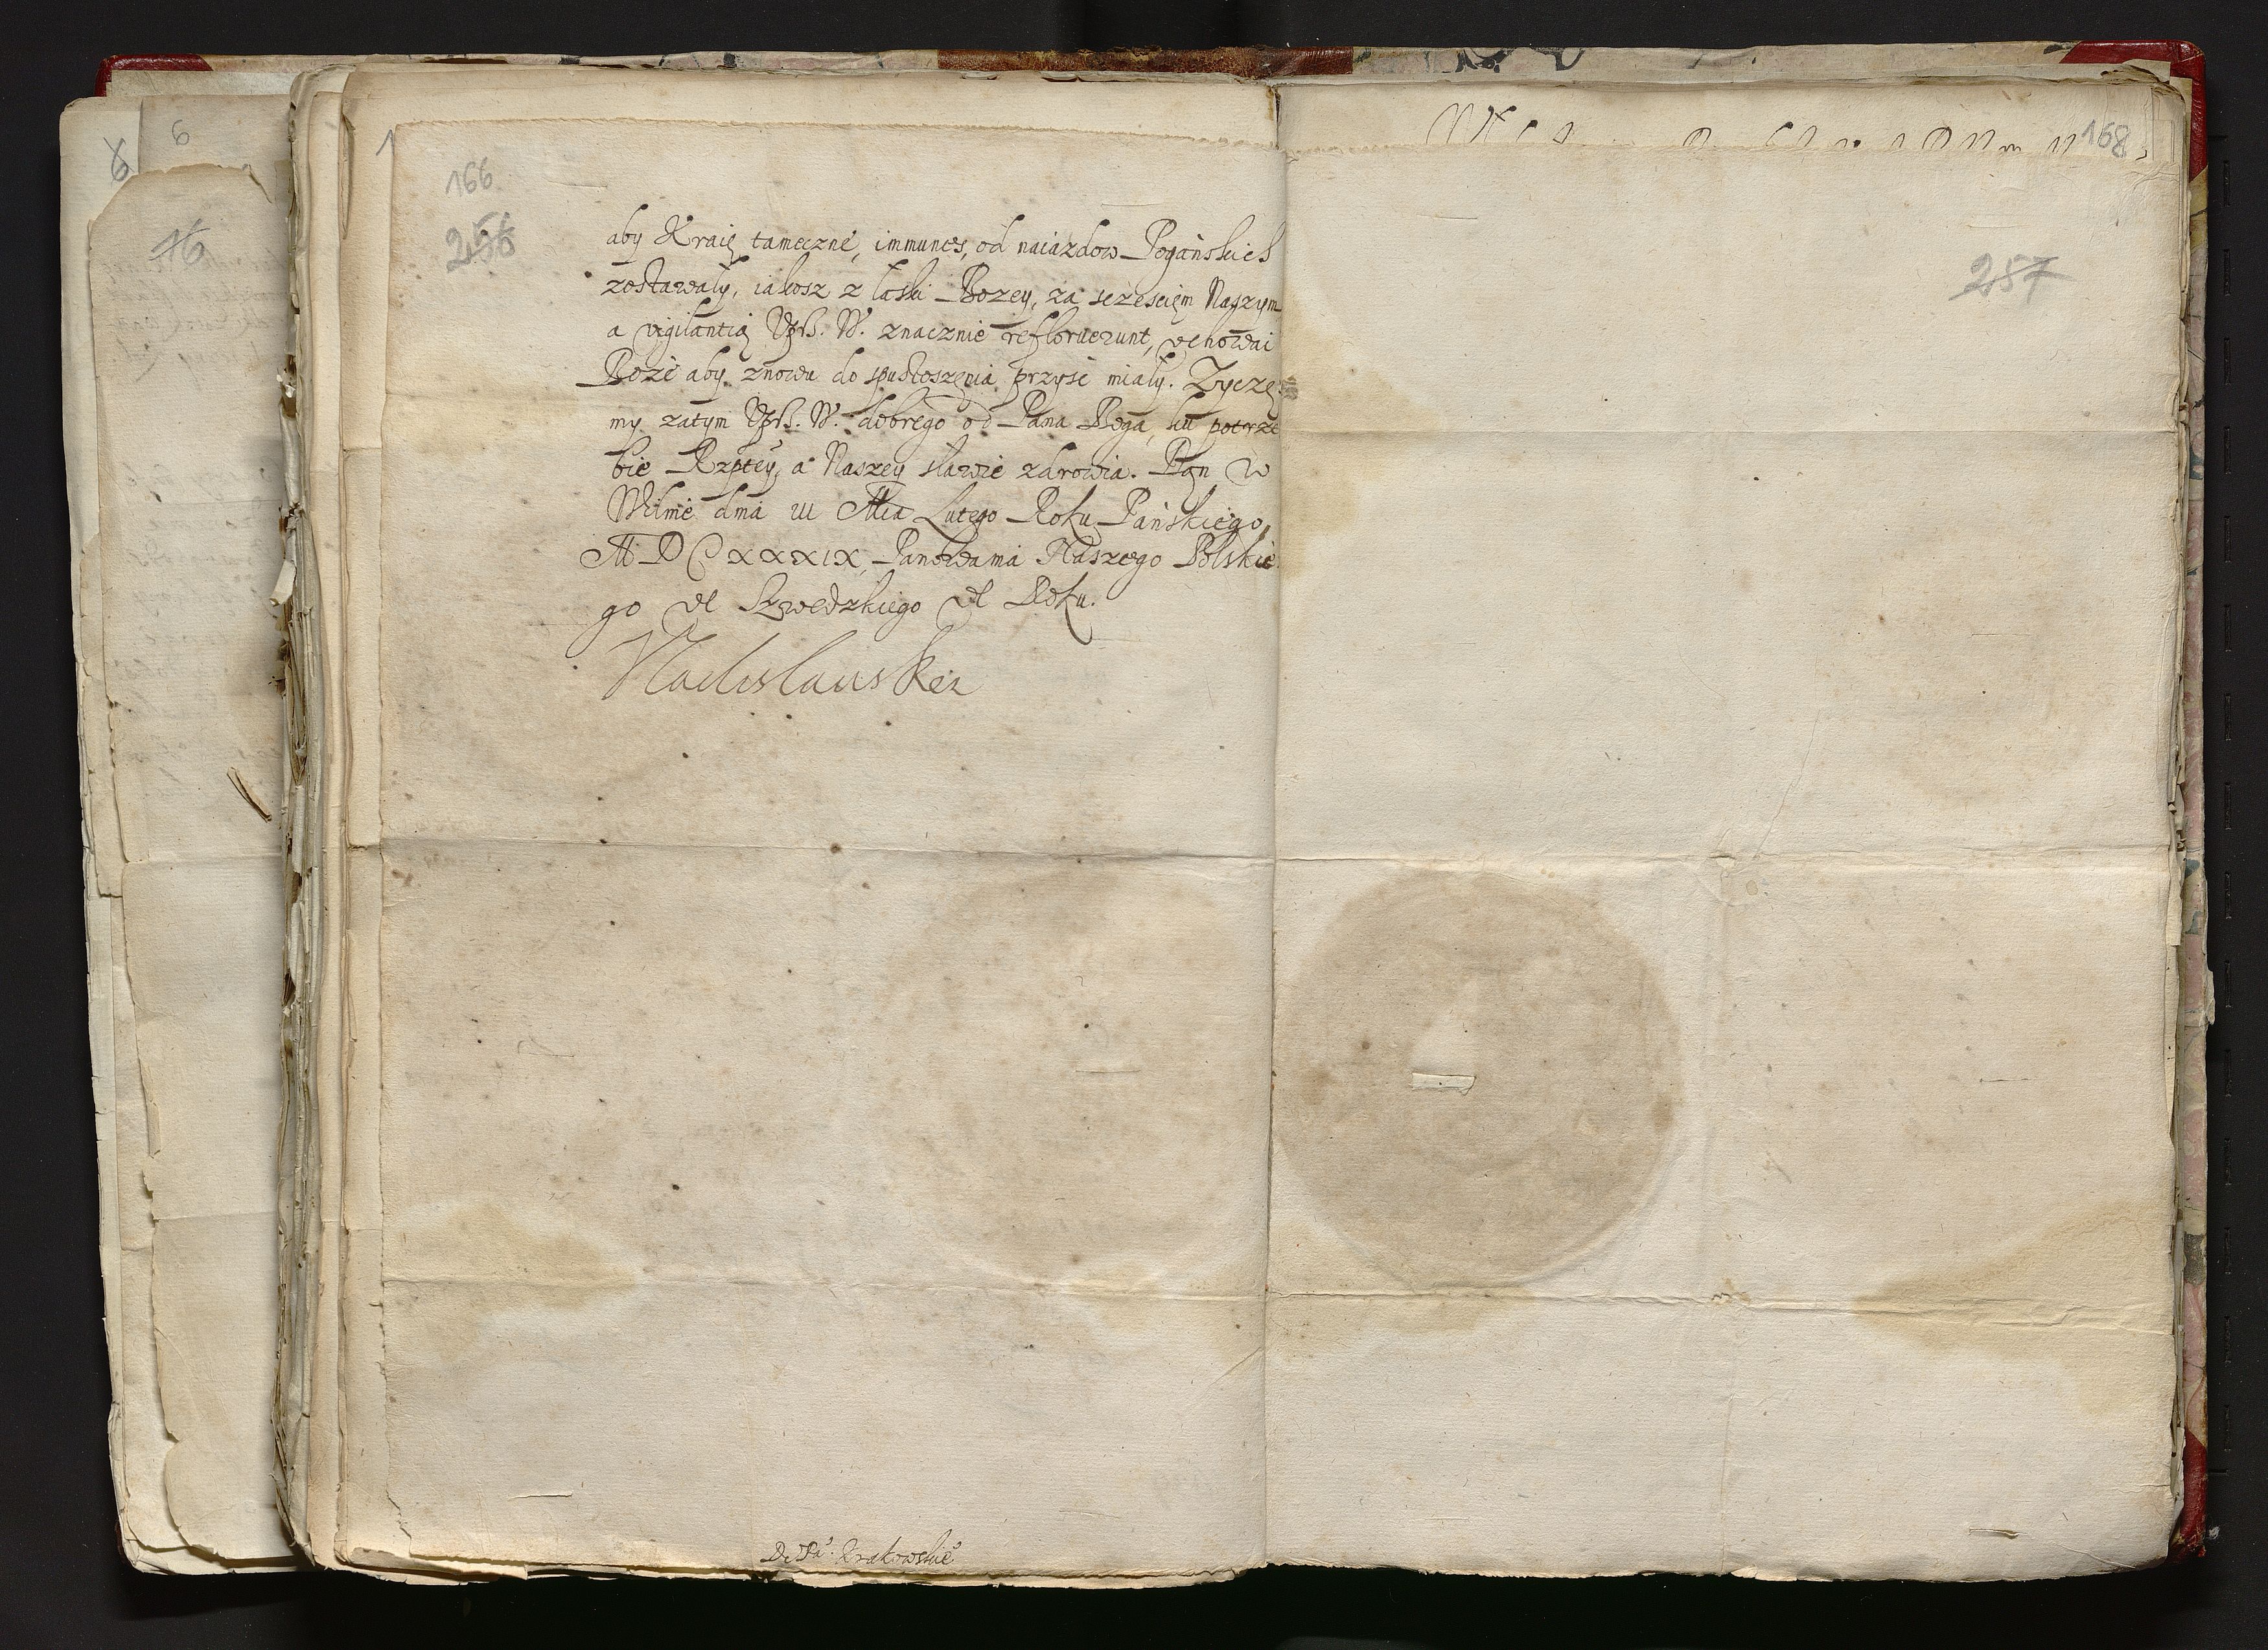 166
256
aby Kraię tameczne, immunes, od naiazdow Pogańskich
zostawały, iakosz z łaski Bozey, za sczescięm Naszym
a vigilantią Uprz. W. znacznie refloruerunt, uchoway
Boże aby znowu do spustoszęnia przysć miały. Zyczę
my zatym Uprz. W. dobrego od Pana Boga, ku potrze
bie Rzptey, a Naszey sławie zdrowia. Dan w
Wilnie dnia III Mca Lutego Roku Pańskiego,
M DC XXXIX, Panowania Naszego Polskie
go VI Szwedzkiego VI Roku.
Vladislaus Rex
Do Pa. Krakowskie
168
257
6
6
16